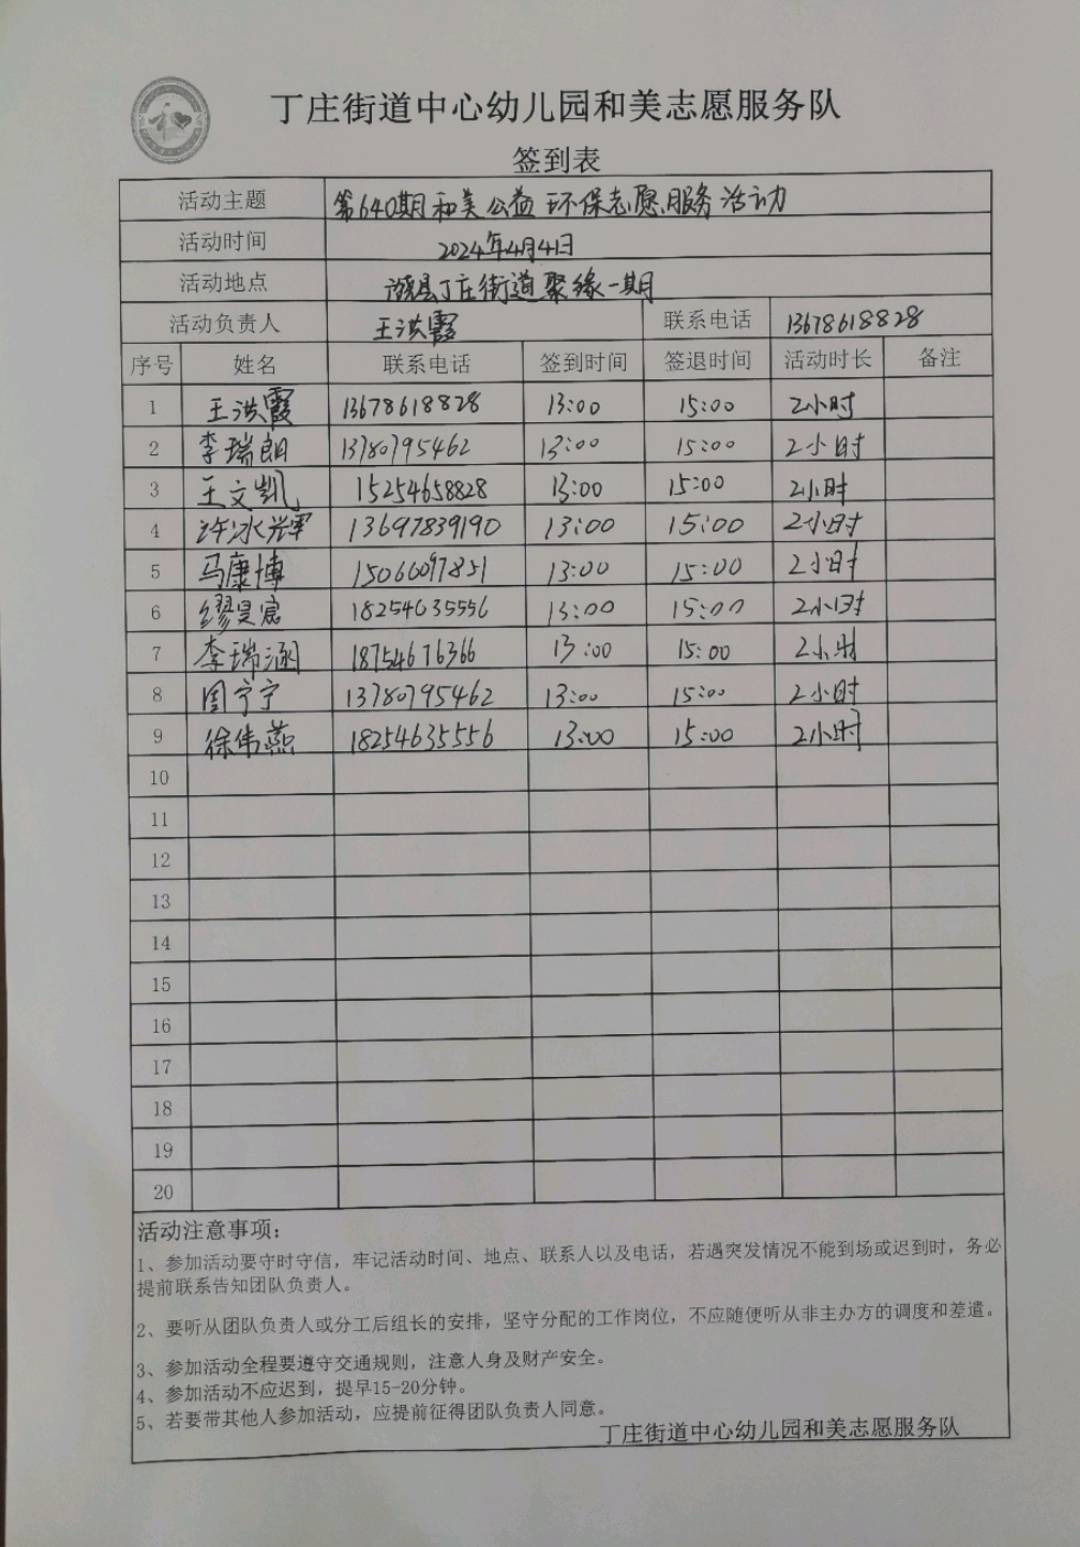 丁庄街道中心幼儿园和美志愿服务队
签到表
活动主题 第640期和美公益环保志愿服务活动
活动时间 2024年4月4日
活动地点 县丁庄街道聚缘一期
活动负责人 王洪霞 联系电话 13678618828
序号 姓名 联系电话 签到时间 签退时间 活动时长 备注
1 王洪霞 13678618828 13:00 15:00 2小时
2 李瑞朗 13780795462 13:00 15:00 2小时
3 王文凯 15254658828 13:00 15:00 2小时
4 许冰辉 13697839190 13:00 15:00 2小时
5 马康博 15066097851 13:00 15:00 2小时
6 缪昊宸 18254635556 13:00 15:00 2小时
7 李瑞涵 18754676366 13:00 15:00 2小时
8 周宁宁 13780795462 13:00 15:00 2小时
9 徐伟燕 18254635556 13:00 15:00 2小时
10
11
12
13
14
15
16
17
18
19
20
活动注意事项：
1、参加活动要守时守信，牢记活动时间、地点、联系人以及电话，若遇突发情况不能到场或迟到时，务必
提前联系告知团队负责人。
2、要听从团队负责人或分工后组长的安排，坚守分配的工作岗位，不应随便听从非主办方的调度和差遣。
3、参加活动全程要遵守交通规则，注意人身及财产安全。
4、参加活动不应迟到，提早15-20分钟。
5、若要带其他人参加活动，应提前征得团队负责人同意。
丁庄街道中心幼儿园和美志愿服务队